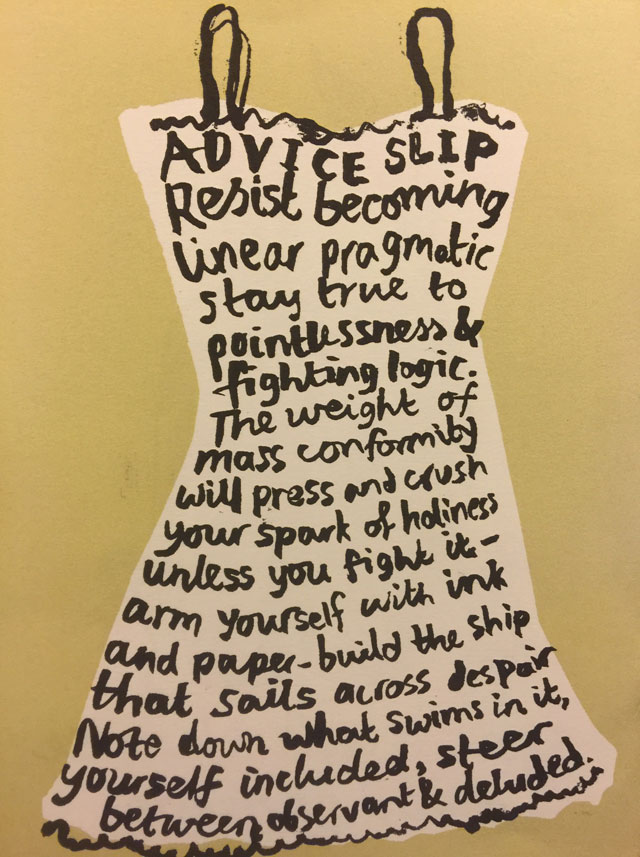 ADVICE SLIP
Resist becoming
linear pragmatic
stay true to
pointlessness &
fighting logic.
The weight of
mass conformity
will press and crush
your spark of holiness
unless you fight it-
arm yourself with ink
and paper-build the ship
that sails across despair
Note down what swims in it,
yourself included, steer
between observant & deluded.